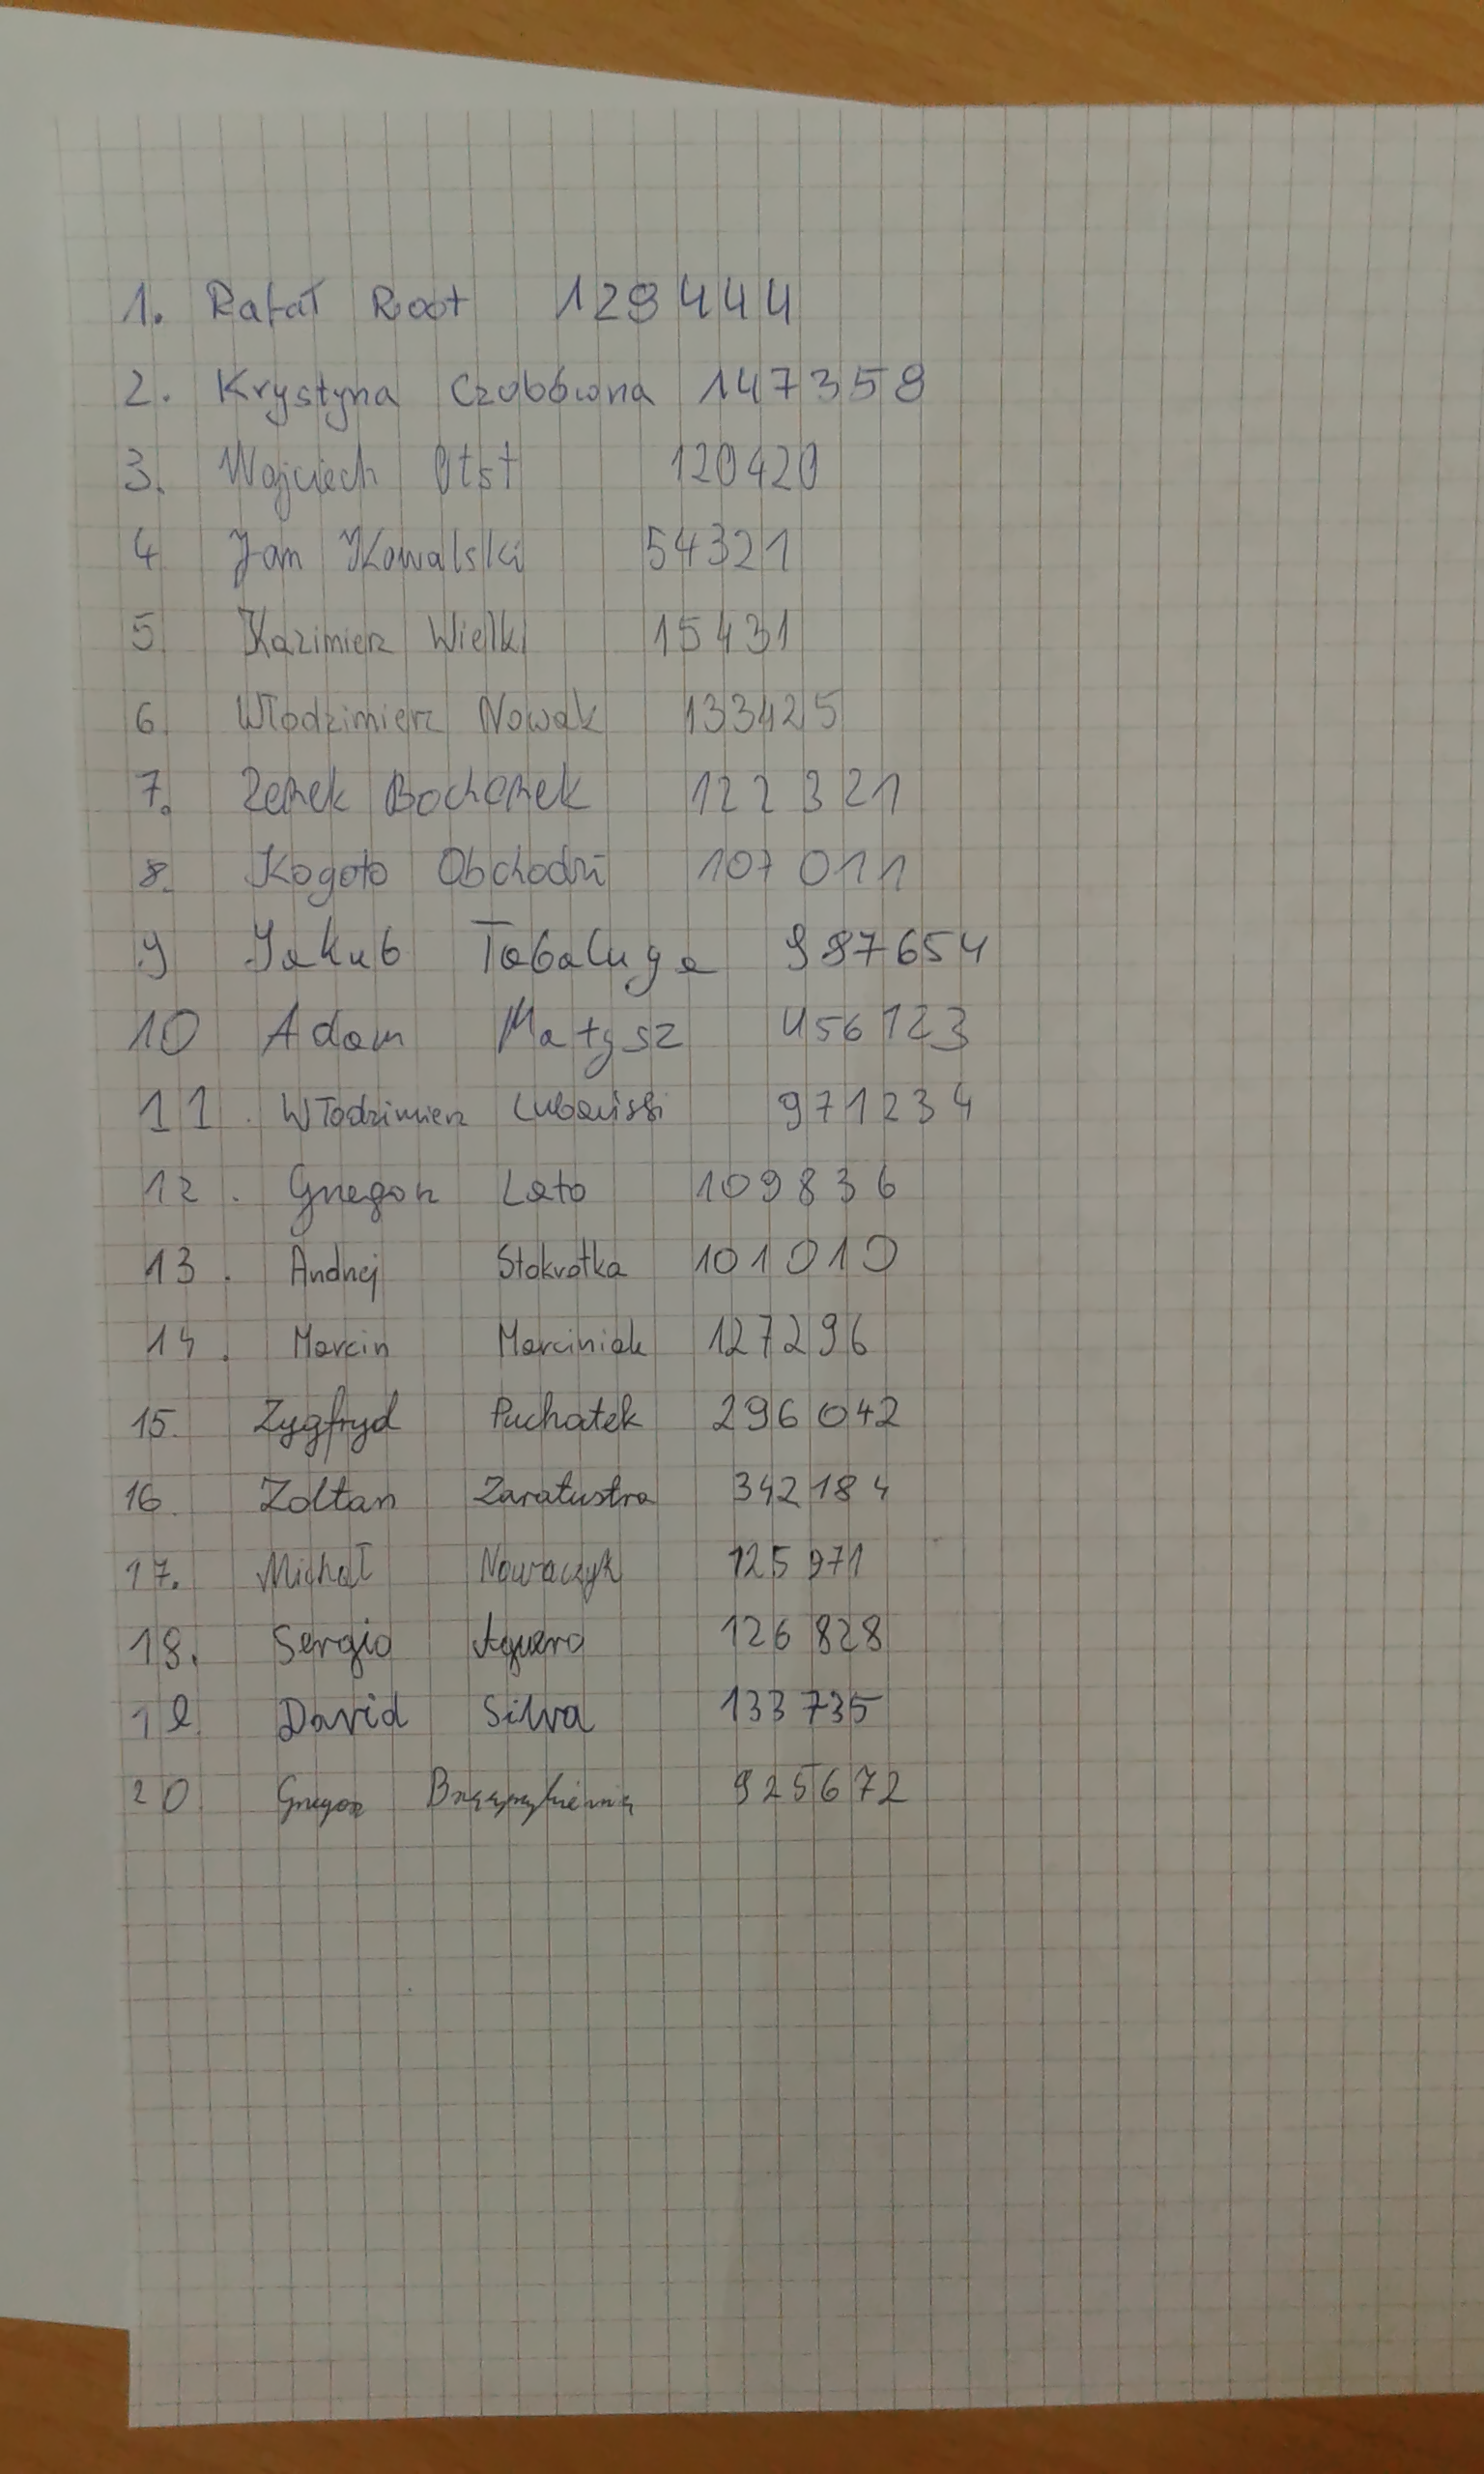 1. Rafał Root 129444
2. Krystyna Czubówna 147359
3. Wojciech Otst 120420
4 Jan Kowalski 54321
5 Kazimierz Wielki 15431
6. Włodzimierz Nowak 133425
7. Zenek Bochenek 122321
8. Kogoto Obchodzi 107011
9 Jakub Tabaluga 987654
10 Adam Małysz 456123
11. Włodzimierz Lubański 971234
12. Grzegorz Lato 109836
13. Andrzej Stokrotka 101010
14. Marcin Marciniak 127296
15. Zygfryd Puchatek 296042
16. Zoltan Zaratustra 342184
17. Michał Nowaczyk 125971
18. Sergio Aguero 126828
19 David Silva 133735
20 Grzegorz 925672